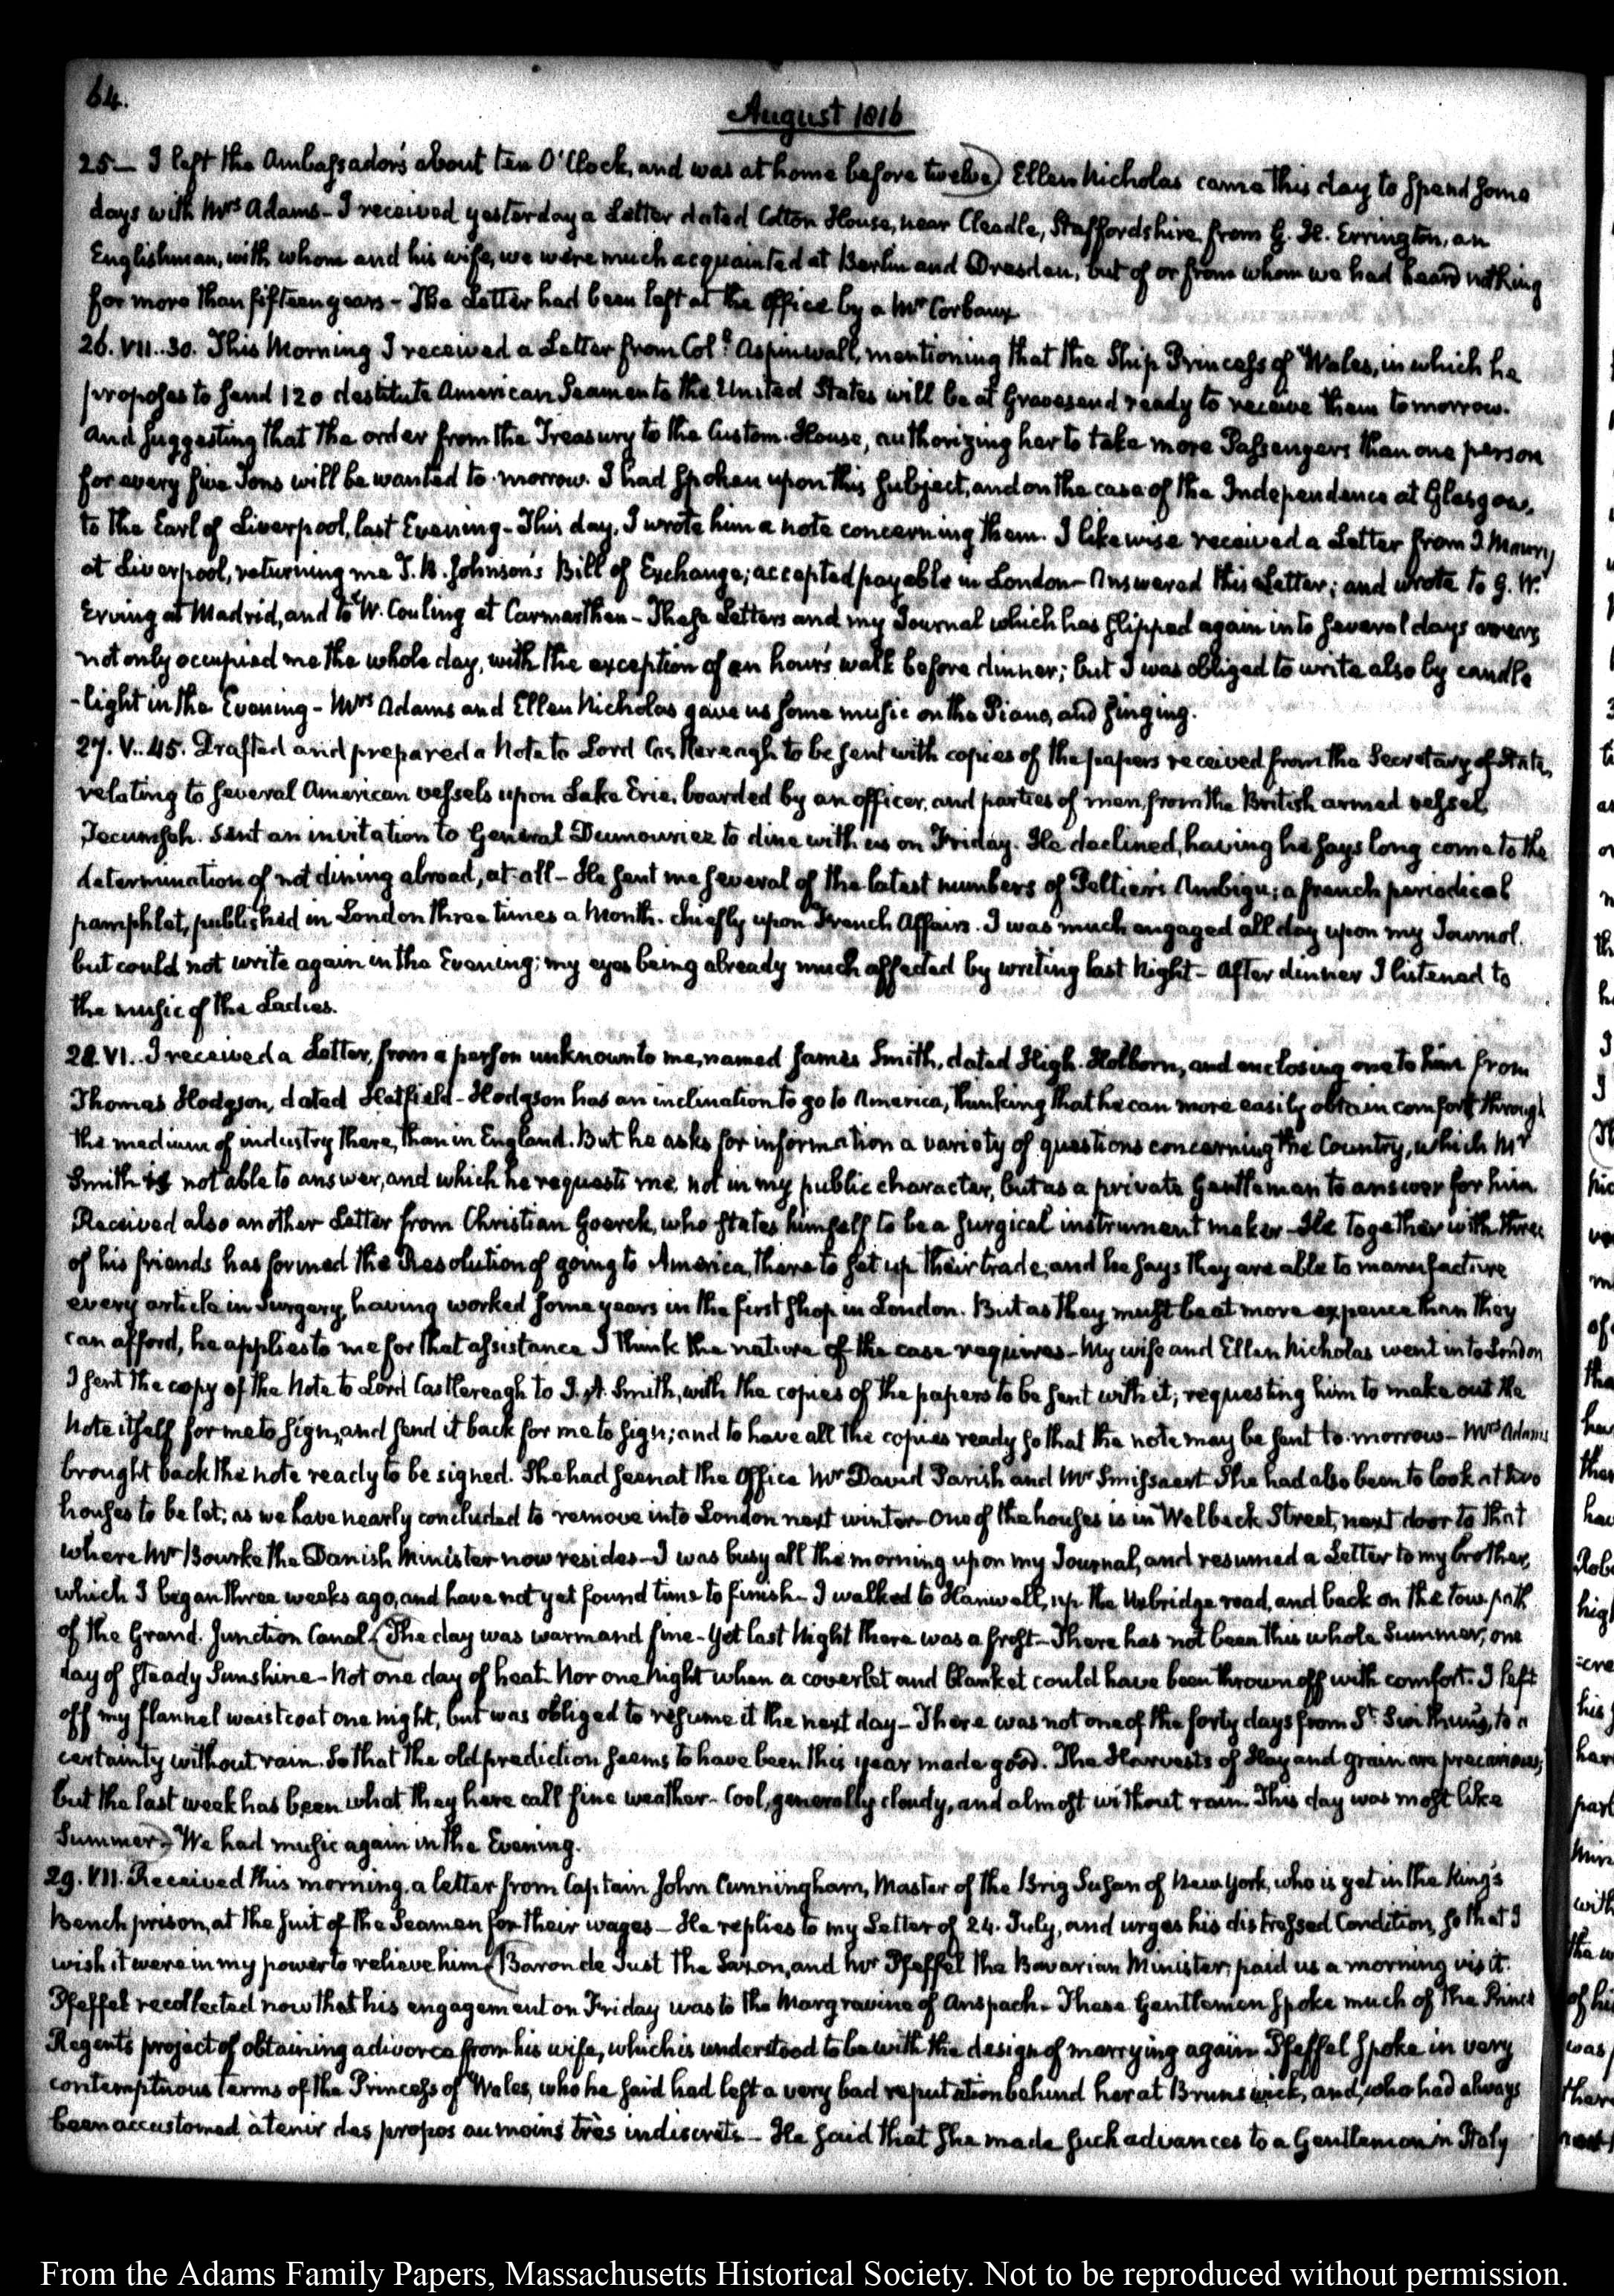 64.
August 1816
25— I left the Ambassador's about ten O'Clock, and was at home before twelve) Ellen Nicholas came this day to spend some
days with Mrs Adams- I received yesterday a Letter dated Cotton House, near Cheadle, Staffordshire from G. H. Errington, an
Englishman, with whom and his wife, we were much acquainted at Berlin and Dresden, but of or from whom we had heard nothing
for more than fifteen years- The Letter had been left at the office by a Mr Corbaux
26. VII..30. This Morning I received a Letter from Coll. Aspinwall, mentioning that the Ship Princess of Wales, in which he
proposes to send 120 destitute American Seamen to the United States will be at Gravesend ready to receive them tomorrow.
And suggesting that the order from the Treasury to the Custom-House, authorizing her to take more Passengers than one person
for every five Tons will be wanted to-morrow. I had spoken upon this subject, and on the case of the Independence at Glasgow,
to the Earl of Liverpool, last Evening- This day, I wrote him a note concerning them. I likewise received a Letter from J. Maury
at Liverpool, returning me T. B. Johnson's Bill of Exchange; accepted payable in London- Answered this Letter; and wrote to G. W.
Erving at Madrid, and to W. Couling at Carmarthen- These Letters and my Journal which has slipped again into several days arrears
not only occupied me the whole day, with the exception of an hour's walk before dinner; but I was obliged to write also by candle
-light in the Evening- Mrs Adams and Ellen Nicholas gave us some music on the Piano, and singing.
27. V..45. Drafted and prepared a Note to Lord Castlereagh to be sent with copies of the papers received from the Secretary of State,
relating to several American vessels upon Lake Erie, boarded by an officer, and parties of men, from the British armed vessel
Tecumseh. Sent an invitation to General Dumouriez to dine with us on Friday. He declined, having he says long come to the
determination of not dining abroad, at all- He sent me several of the latest numbers of Peltier's Ambigu; a french periodical
pamphlet, published in London three times a Month. chiefly upon French Affairs. I was much engaged all day upon my Journal.
but could not write again in the Evening; my eyes being already much affected by writing last Night- After dinner I listened to
the music of the Ladies.
28. VI.. I received a Letter, from a person unknown to me, named James Smith, dated High-Holborn, and enclosing one to him from
Thomas Hodgson, dated Hatfield- Hodgson has an inclination to go to America, thinking that he can more easily obtain comfort through
the medium of industry there, than in England. But he asks for information a variety of questions concerning the Country, which Mr
Smith is not able to answer, and which he requests me, not in my public character, but as a private Gentleman to answer for him.
Received also another Letter from Christian Goerck, who states himself to be a surgical instrument maker- He together with three
of his friends has formed the Resolution of going to America, there to set up their trade; and he says they are able to manufacture
every article in Surgery, having worked some years in the first shop in London. But as they must be at more expence than they
can afford, he applies to me for that assistance I think the nature of the case requires- My wife and Ellen Nicholas went into London
I sent the copy of the Note to Lord Castlereagh to J. A. Smith, with the copies of the papers to be sent with it; requesting him to make out the
Note itself for me to sign, and send it back for me to sign; and to have all the copies ready so that the note may be sent to-morrow- Mrs Adams
brought back the note ready to be signed. She had seen at the Office Mr David Parish and Mr Smissaert She had also been to look at two
houses to be let; as we have nearly concluded to remove into London next winter- One of the houses is in Welbeck Street, next door to that
where Mr Bourke the Danish Minister now resides- I was busy all the morning upon my Journal, and resumed a Letter to my brother,
which I began three weeks ago, and have not yet found time to finish- I walked to Hanwell, up the Uxbridge road, and back on the tow path
of the Grand-Junction Canal (The day was warm and fine- Yet last Night there was a frost- There has not been this whole Summer, one
day of steady Sunshine- Not one day of heat- Nor one Night when a coverlet and blanket could have been thrown off with comfort. I left
off my flannel waistcoat one night, but was obliged to resume it the next day- There was not one of the forty days from St Swithin's, to a
certainty without rain. So that the old prediction seems to have been this year made good. The Harvests of Hay and grain are precarious;
but the last week has been what they here call fine weather- Cool, generally cloudy, and almost without rain. This day was most like
Summer-) We had music again in the Evening.
29. VII. Received this morning, a letter from Captain John Cunningham, Master of the Brig Susan of New York, who is yet in the King's
Bench prison, at the suit of the Seamen for their wages- He replies to my Letter of 24. July, and urges his distressed Condition, so that I
wish it were in my power to relieve him (Baron de Just the Saxon, and Mr Pfeffel the Bavarian Minister, paid us a morning visit.
Pfeffel recollected now that his engagement on Friday was to the Margravine of Anspach- These Gentlemen spoke much of the Prince
Regent's project of obtaining a divorce from his wife, which is understood to be with the design of marrying again- Pfeffel spoke in very
contemptuous terms of the Princess of Wales, who he said had left a very bad reputation behind her at Brunswick, and, who had always
been accustomed à tenir des propos au moins très indiscrets- He said that she made such advances to a Gentleman in Italy
From the Adams Family Papers, Massachusetts Historical Society. Not to be reproduced without permission.